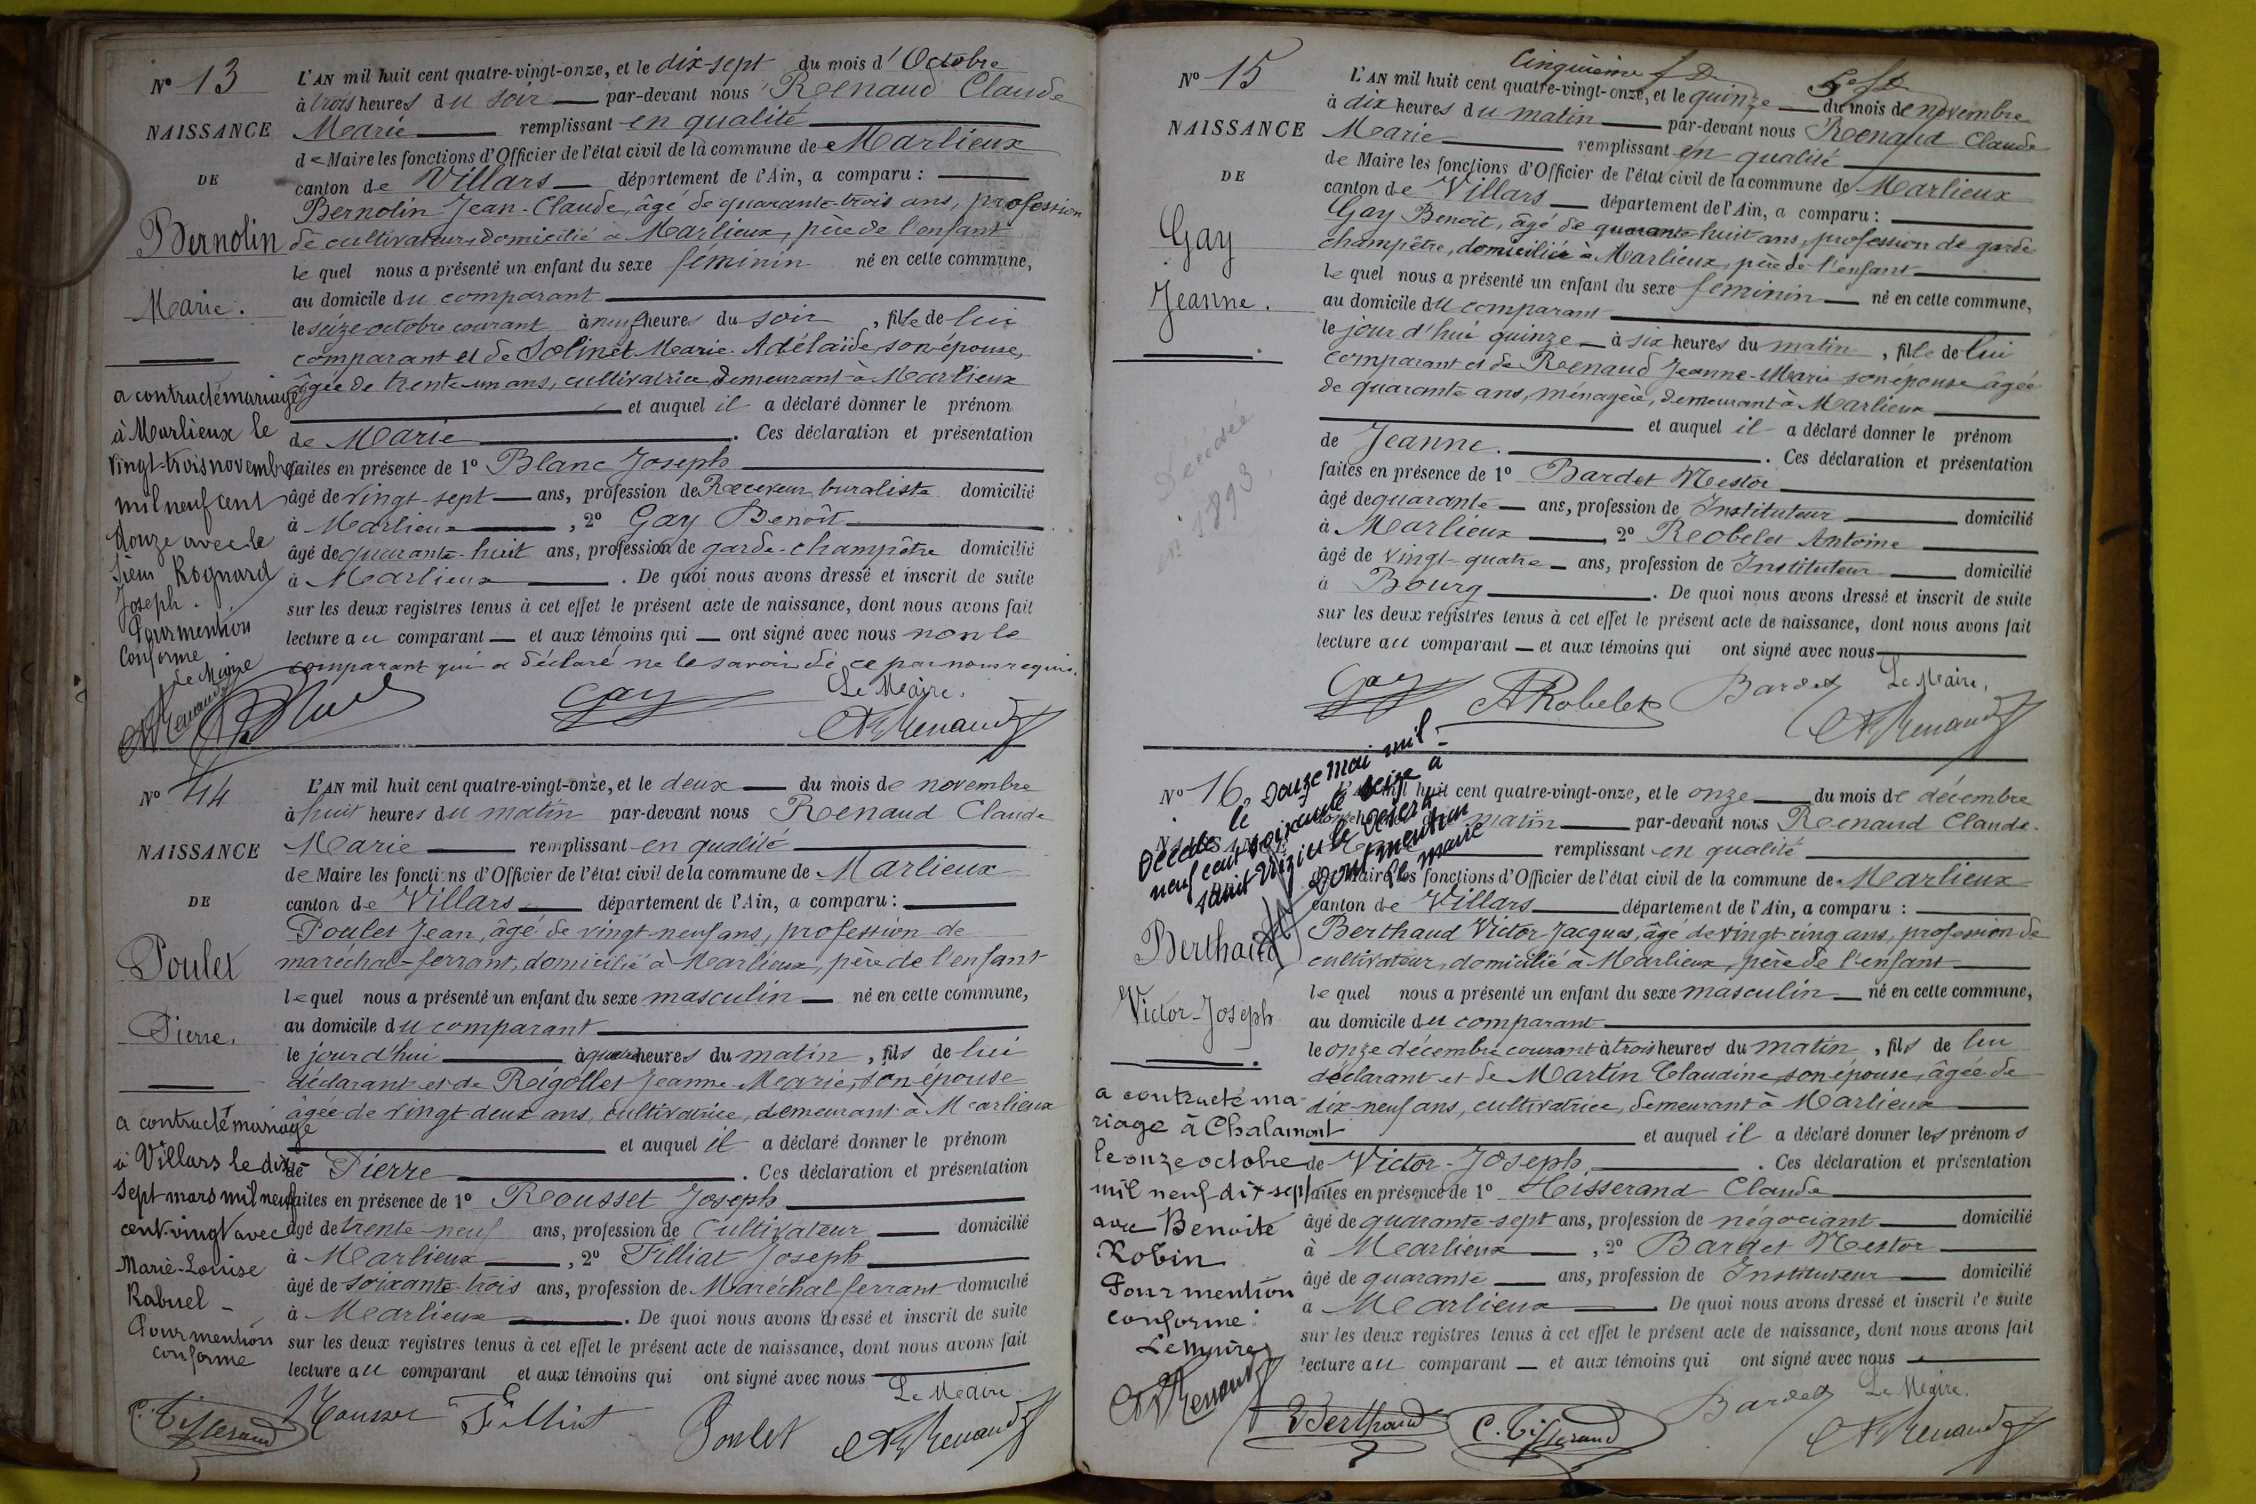 N° 13
NAISSANCE
DE
Bernolin
Marie.
a contracté mariage
à Marlieux le
vingt-trois novembre
mil neuf cent
douze avec le
sieur Rognard
Joseph.
Pour mention
Conforme
Le Maire
L'AN mil huit cent quatre-vingt-onze, et le dix-sept du mois d'Octobre
à trois heures du soir par-devant nous Renaud Claude
Marie remplissant en qualité
de Maire les fonctions d'Officier de l'état civil de la commune de Marlieux
canton de Villars département de l'Ain, a comparu :
Bernolin Jean-Claude, âgé de quarante-trois ans, profession
de cultivateur, domicilié à Marlieux, père de l'enfant
lequel nous a présenté un enfant du sexe féminin né en cette commune,
au domicile du comparant
le seize octobre courant à neuf heures du soir, fille de lui
comparant et de Solinet Marie-Adélaïde, son épouse,
âgée de trente un ans, cultivatrice, demeurant à Marlieux
et auquel il a déclaré donner le prénom
de Marie. Ces déclaration et présentation
faites en présence de 1° Blanc Joseph
âgé de vingt-sept ans, profession de Receveur buraliste domicilié
à Marlieux, 2° Gay Benoît
âgé de quarante-huit ans, profession de garde-champêtre domicilié
à Marlieux. De quoi nous avons dressé et inscrit de suite
sur les deux registres tenus à cet effet le présent acte de naissance, dont nous avons fait
lecture au comparant et aux témoins qui ont signé avec nous non le
comparant qui a déclaré ne le savoir de ce par nous requis.
Gay Le Maire.
Renaud
N° 14
NAISSANCE
DE
Poulet
Pierre.
a contracté mariage
à Villars le dix
sept mars mil neuf
cent-vingt avec
Marie-Louise
Rabuel
Pour mention
conforme
L'AN mil huit cent quatre-vingt-onze, et le deux du mois de novembre
à huit heures du matin par-devant nous Renaud Claude
Marie remplissant en qualité
de Maire les fonctions d'Officier de l'état civil de la commune de Marlieux
canton de Villars département de l'Ain, a comparu :
Poulet Jean, âgé de vingt-neuf ans, profession de
maréchal-ferrant, domicilié à Marlieux, père de l'enfant
lequel nous a présenté un enfant du sexe masculin né en cette commune,
au domicile du comparant
le jour d'hui à quatre heures du matin, fils de lui
déclarant et de Rigollet Jeanne Marie, son épouse
âgée de vingt deux ans, cultivatrice, demeurant à Marlieux
et auquel il a déclaré donner le prénom
de Pierre. Ces déclaration et présentation
faites en présence de 1° Rousset Joseph
âgé de trente-neuf ans, profession de Cultivateur domicilié
à Marlieux, 2° Filliat Joseph
âgé de soixante-trois ans, profession de Maréchal ferrant domicilié
à Marlieux. De quoi nous avons dressé et inscrit de suite
sur les deux registres tenus à cet effet le présent acte de naissance, dont nous avons fait
lecture au comparant et aux témoins qui ont signé avec nous
Le Maire
C. Tisserand Rousset Filliat Poulet Renaud
N° 15
NAISSANCE
DE
Gay
Jeanne.
Décédée
en 1893
Cinquième
L'AN mil huit cent quatre-vingt-onze, et le quinze du mois de novembre
à dix heures du matin par-devant nous Renaud Claude
Marie remplissant en qualité
de Maire les fonctions d'Officier de l'état civil de la commune de Marlieux
canton de Villars département de l'Ain, a comparu :
Gay Benoît, âgé de quarante-huit ans, profession de garde
champêtre, domicilié à Marlieux, père de l'enfant
lequel nous a présenté un enfant du sexe féminin né en cette commune,
au domicile du comparant
le jour d'hui quinze à six heures du matin, fille de lui
comparant et de Renaud Jeanne-Marie son épouse âgée
de quarante ans, ménagère, demeurant à Marlieux
et auquel il a déclaré donner le prénom
de Jeanne. Ces déclaration et présentation
faites en présence de 1° Bardet Nestor
âgé de quarante ans, profession de Instituteur domicilié
à Marlieux, 2° Robelet Antoine
âgé de vingt-quatre ans, profession de Instituteur domicilié
à Bourg. De quoi nous avons dressé et inscrit de suite
sur les deux registres tenus à cet effet le présent acte de naissance, dont nous avons fait
lecture au comparant et aux témoins qui ont signé avec nous
Gay ARobelet Bardet Le Maire,
Renaud
N° 16
Décédé le douze mai mil
neuf cent soixante seize à
saint Vrizin le Désert
Dont mention
Le maire
Berthaud
Victor-Joseph
a contracté ma-
riage à Chalamont
le onze octobre
mil neuf dix-sept
avec Benoite
Robin
Pour mention
conforme
Le Maire
Renaud
huit cent quatre-vingt-onze, et le onze du mois de décembre
matin par-devant nous Renaud Claude.
remplissant en qualité
Maire les fonctions d'Officier de l'état civil de la commune de Marlieux
canton de Villars département de l'Ain, a comparu :
Berthaud Victor-Jacques, âgé de vingt-cinq ans, profession de
cultivateur, domicilié à Marlieux, père de l'enfant
lequel nous a présenté un enfant du sexe masculin né en cette commune,
au domicile du comparant
le onze décembre courant à trois heures du matin, fils de lui
déclarant et de Martin Claudine, son épouse, âgée de
dix-neuf ans, cultivatrice, demeurant à Marlieux
et auquel il a déclaré donner les prénoms
de Victor-Joseph. Ces déclaration et présentation
faites en présence de 1° Tisserand Claude
âgé de quarante sept ans, profession de négociant domicilié
à Marlieux, 2° Bardet Nestor
âgé de quarante ans, profession de Instituteur domicilié
à Marlieux De quoi nous avons dressé et inscrit de suite
sur les deux registres tenus à cet effet le présent acte de naissance, dont nous avons fait
lecture au comparant et aux témoins qui ont signé avec nous
Berthaud C. Tisserand Bardet Le Maire.
Renaud